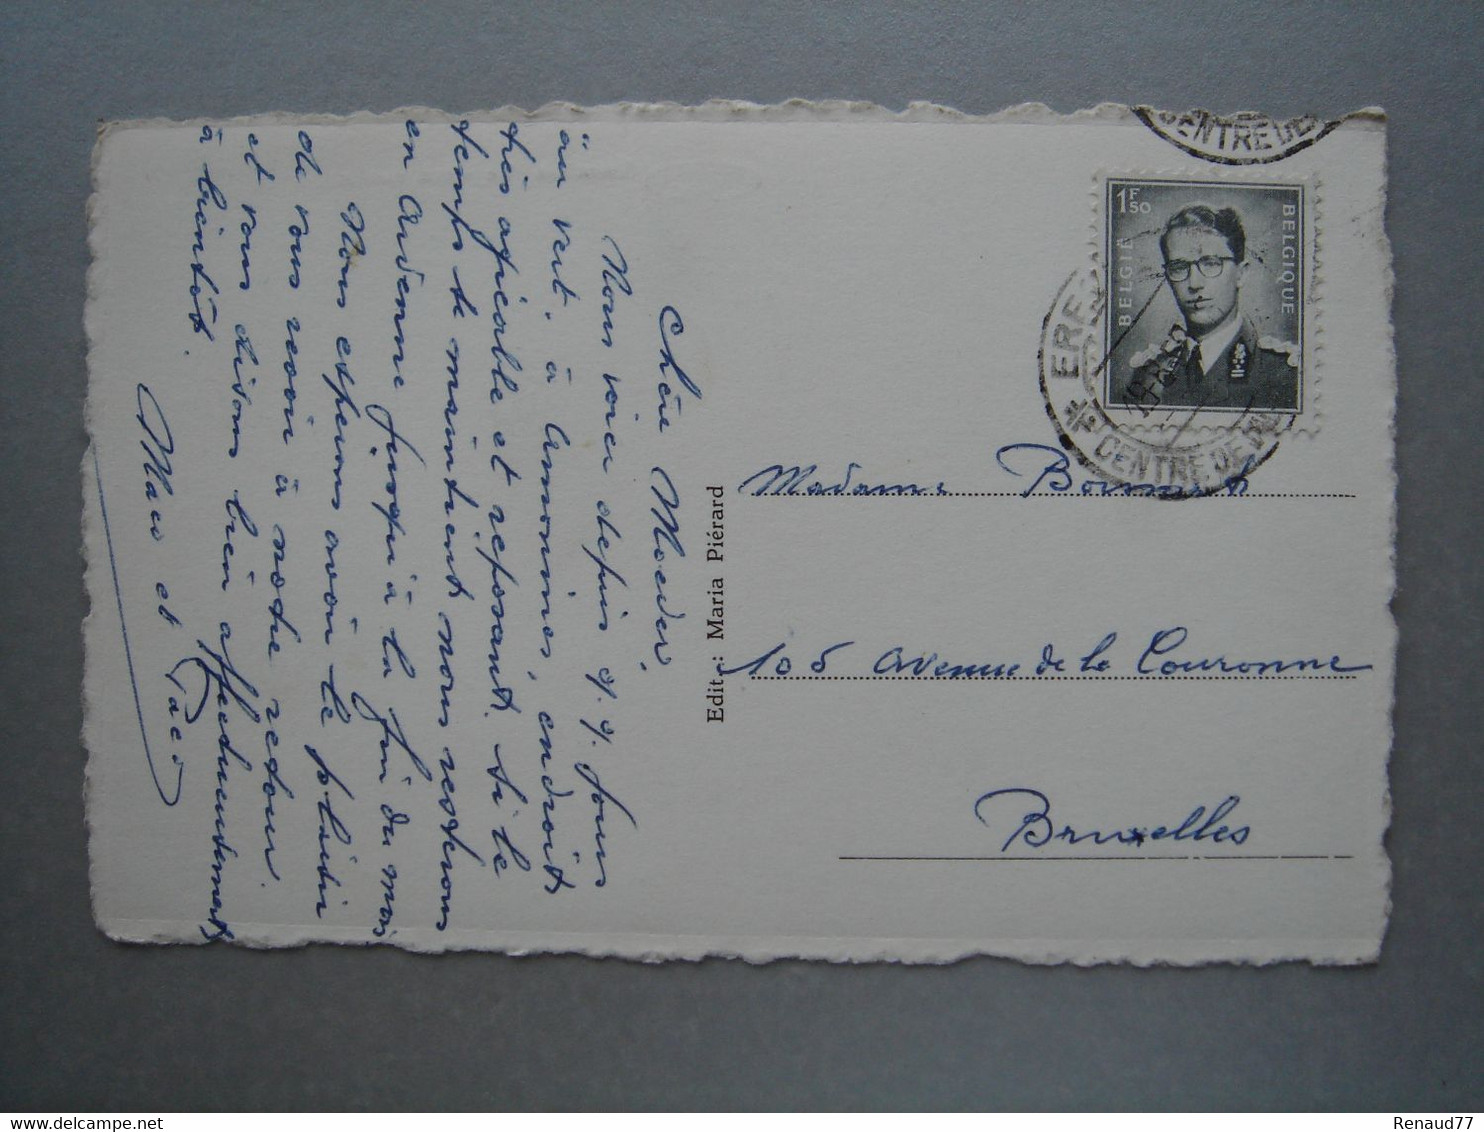 Chère Moeder,
Nous voici depuis q.q. jours
au vert. à Amonines, endroit
très agréable et reposant. Si le
temps se maintient nous resterons
en Ardenne jusqu'à la fin du mois
Nous espérons avoir le plaisir
de vous revoir à notre retour.
et vous disons bien affectueusement,
à bientôt.
et
Edit.: Maria Piérard
1F50
BELGIE
BELGIQUE
CENTRE DE
EREZ
CENTRE DE
Madame
105 avenue de la Couronne
Bruxelles
delcampe.net
Renaud77